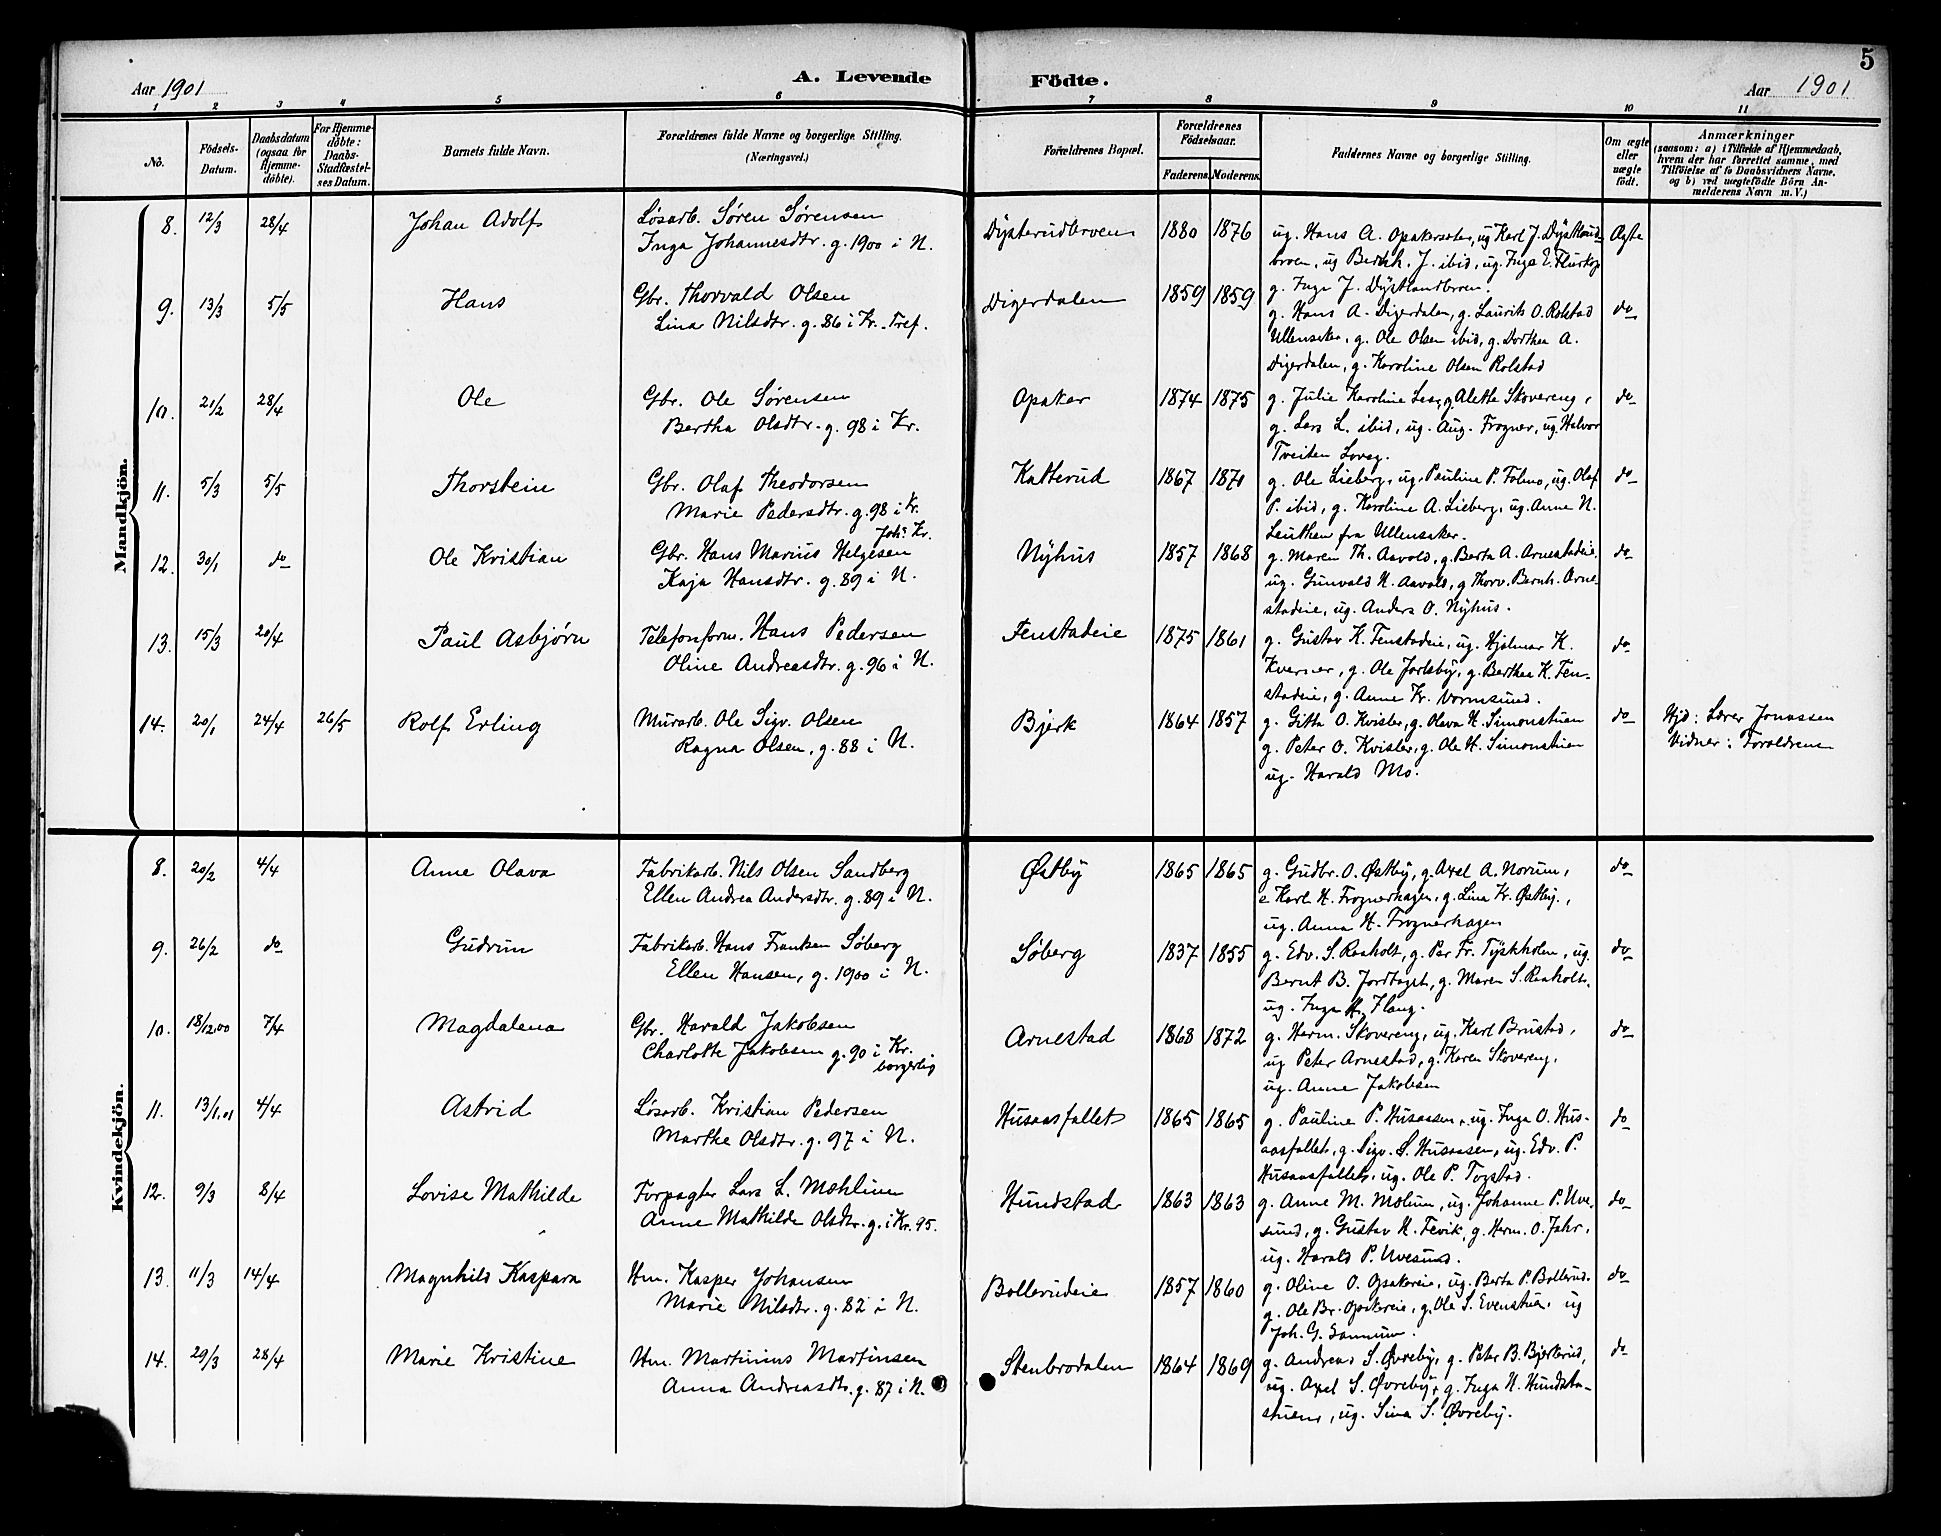 5
Aar 1901
A. Levende Födte.
Aar 1901
1 2 3 4 5 6 7 8 9 10 11
No.
Födsels-Datum.
Daabsdatum (ogsaa for Hjemme-döbte).
For Hjemme-döbte: Daabs-Stadfæstel-ses Datum.
Barnets fulde Navn.
Forældrenes fulde Navne og borgerlige Stilling. (Næringsvei.)
Forældrenes Bopæl.
Forældrenes Födselsaar.
Faderens. Moderens.
Faddernes Navne og borgerlige Stilling.
Om ægte eller uægte födt.
Anmærkninger (saasom: a) i Tilfælde af Hjemmedaab, hvem der har forrettet samme, med Tilföielse af to Daabsvidners Navne, og b) ved uægtefödte Börn An-melderens Navn m. V.)
Mandkjön.
8. 12/3 28/4 Johan Adolf Løsarb. Søren Sørensen Dysterudbroen 1880 1876 ug. Hans A. Opakersæter, ug Karl J. Dystland- Ægte
Inga Johannesdtr. g. 1900 i N. broen, ug Bernh. J. ibid, ug. Inga E. Flurkop
g. Inga J. Dystlandbroen.
9. 13/3 5/5 Hans Gbr. Thorvald Olsen Digerdalen 1859 1859 g. Hans A. Digerdalen, g. Laurits O. Rolstad do
Lina Nilsdtr. g. 86 i Kr. Tref. Ullensaker, g. Ole Olsen ibid, g. Dorthea A.
Digerdalen, g. Karoline Olsen Rolstad
10. 21/2 28/4 Ole Gbr. Ole Sørensen Opaker 1874 1875 g. Julie Karoline g. Alette Skovereng, do
Bertha Olsdtr. g. 98 i Kr. g. Lars L. ibid, ug. Aug. Frogner, ug. Halvor
Tveiten
11. 5/3 5/5 Thorstein Gbr. Olaf Theodorsen Katterud 1867 1871 g. Ole Lieberg, ug. Pauline P. Folmo, ug. Olaf do
Marie Pedersdtr. g. 98 i Kr. P. ibid, g. Karoline A. Lieberg, ug. Anne N.
Joh. Kr. Leuthen fra Ullensaker.
12. 30/1 do Ole Kristian Gbr. Hans Marius Helgesen Nyhus 1857 1868 g. Maren Th. Aavold, g. Berta A. Arnestadeie, do
Kaja Hansdtr. g. 89 i N. ug. Gunvald H. Aavold, g Thorv. Bernh. Arne-
stadeie, ug. Anders O. Nyhus.
13. 15/3 20/4 Paul Asbjørn Telefonform. Hans Pedersen Fenstadeie 1875 1861 g. Gustav K. Fenstadeie, ug. Hjalmar K. do
Oline Andreasdtr. g. 96 i N. Kverner, g. Ole Jarlsby, g. Berthea K. Fen-
stadeie, g. Anne Kr. Vormsund.
14. 20/1 24/4 26/5 Rolf Erling Murarb. Ole Sigv. Olsen Bjerk 1864 1857 g. Gitta O. Kvisler, g. Olava H. Simonstuen do Hjd: Lærer Jonassen
Ragna Olsen, g. 88 i N. g. Peter O. Kvisler, g. Ole H. Simonstuen Vidner: Forældrene
ug. Harald Mo.
Kvindekjön.
8. 20/2 4/4 Anne Olava Fabrikarb. Nils Olsen Sandberg Østby 1865 1865 g. Gudbr. O. Østby, g. Axel A. Norum, do
Ellen Andrea Andersdtr. g. 89 i N. e Karl H. Frognerhagen, g. Lina Kr. Østby.,
ug. Anna H. Frognerhagen
9. 26/2 do Gudrun Fabrikarb. Hans Frantsen Søberg Søberg 1837 1855 g. Edv. S. Raaholt, g. Per Fr. Tyskholm, ug. do
Ellen Hansen, g. 1900 i N. Bernt B. Jordtaget, g. Maren S. Raaholt,
ug. Inga H. Flaug.
10. 18/12.00 7/4 Magdalena Gbr. Harald Jakobsen Arnestad 1868 1872 g. Herm. Skovereng, ug. Karl Brustad, do
Charlotte Jakobsen g. 90 i Kr. borgerlig ug Peter Arnestad, g. Karen Skovereng,
ug. Anne Jakobsen
11. 13/1.01 4/4 Astrid Løsarb. Kristian Pedersen Husaasfallet 1865 1865 g. Pauline P. Husaasen, ug. Inga O. Hus- do
Marthe Olsdtr. g. 97 i N. aasfallet, g. Sigv. S. Husaasen, ug. Edv. P.
Husaasfallet, ug. Ole P. Togstad.
12. 9/3 8/4 Lovise Mathilde Forpagter Lars L. Mæhlum Hundstad 1863 1863 g. Anne M. Mælum, ug. Johanne P. Uve- do
Anne Mathilde Olsdtr. g. i Kr. 95. sund, g. Gustav H. Fevik, g. Herm. O. Jahr,
ug. Harald P. Uvesund.
13. 11/3 14/4 Magnhild Kaspara Hm. Kasper Johansen Bollerudeie 1857 1860 g. Oline O. Opakereie, ug. Berta P. Bollerud. do
Marie Nilsdtr. g. 82 i N. g. Ole Br. Opakereie, g. Ole S. Evenstuen. ug
Joh. G.
14. 29/3 28/4 Marie Kristine Hm. Martinius Martinsen Stenbrodalen 1864 1869 g. Andreas S. Øvreby, g. Peter B. Bjerkerud, do
Anna Andreasdtr. g. 87 i N. ug. Axel S. Øvreby, g. Inga H. Hundsta-
stuen, ug. Lina S. Øvreby.